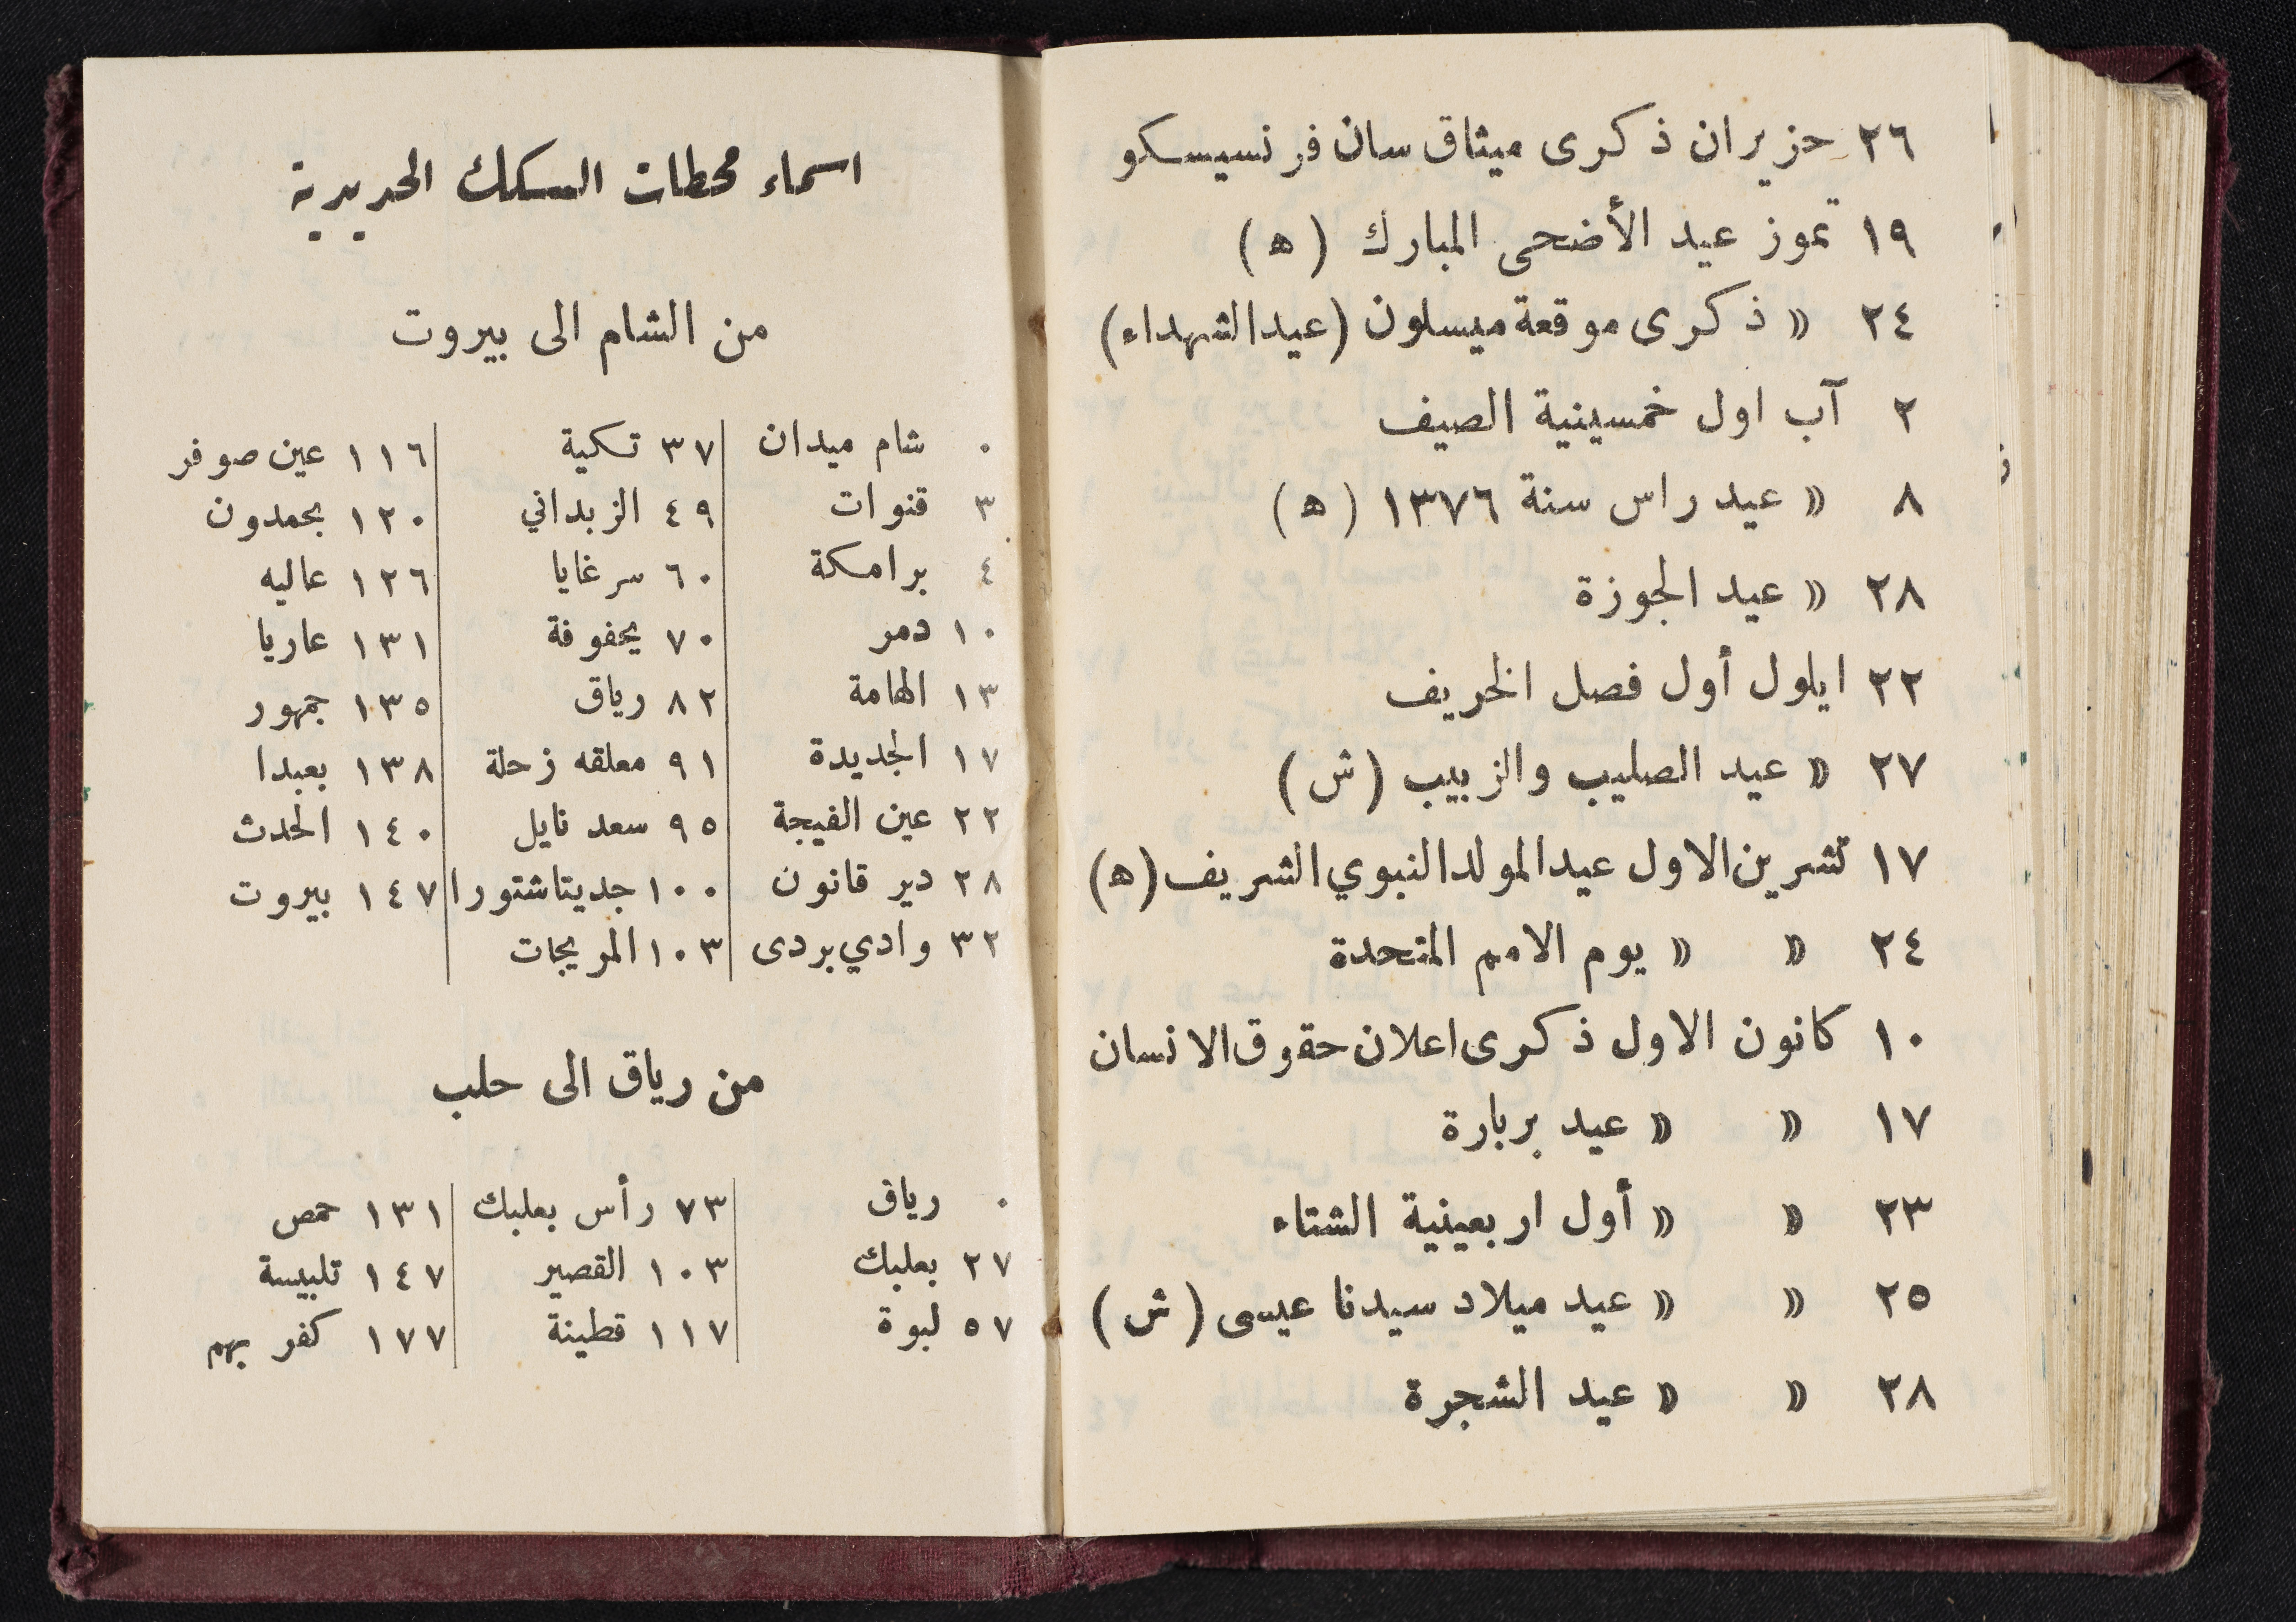 ٢٦ حزيران ذكرى ميثاق سان فرنسيسكو
١٩ تموز عيد الأضحى المبارك (ه)
٢٤ « ذكرى موقعة ميسلون (عيد الشهداء)
٢ آب اول خمسينية الصيف
٨ « عيد راس سنة ١٣٧٦ (ه)
٢٨ « عيد الجوزة
٢٢ ايلول أول فصل الخريف
٢٧ « عيد الصليب والزبيب (ش)
١٧ تشرين الاول عيد المولد النبوي الشريف (ه)
٢٤ « « يوم الامم المتحدة
١٠ كانون الاول ذكرى اعلان حقوق الانسان
١٧ « « عيد بربارة
٢٣ « « أول اربعينية الشتاء
٢٥ « « عيد ميلاد سيدنا عيسى (ش)
٢٨ « « عيد الشجرة
اسماء محطات السكك الحديدية
من الشام الى بيروت
٠ شام ميدان ٣٧ تكية ١١٦ عين صوفر
٣ قنوات ٤٩ الزبداني ١٢٠ بحمدون
٤ برامكة ٦٠ سرغايا ١٢٦ عاليه
١٠ دمر ٧٠ يحفوفة ١٣١ عاريا
١٣ الهامة ٨٢ رياق ١٣٥ جمهور
١٧ الجديدة ٩١ معلقه زحلة ١٣٨ بعبدا
٢٢ عين الفيجة ٩٥ سعد نايل ١٤٠ الحدث
٢٨ دير قانون ١٠٠ جديتا شتورا ١٤٧ بيروت
٣٢ وادي بردى ١٠٣ المريجات
من رياق الى حلب
٠ رياق ٧٣ رأس بعلبك ١٣١ حمص
٢٧ بعلبك ١٠٣ القصير ١٤٧ تلبيسة
٥٧ لبوة ١١٧ قطينة ١٧٧ كفر بهم